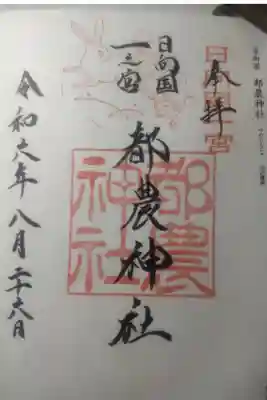 奉拝
日向国
一之宮
都農神社
令和六年八月二十六日
都農
神社
都農神社